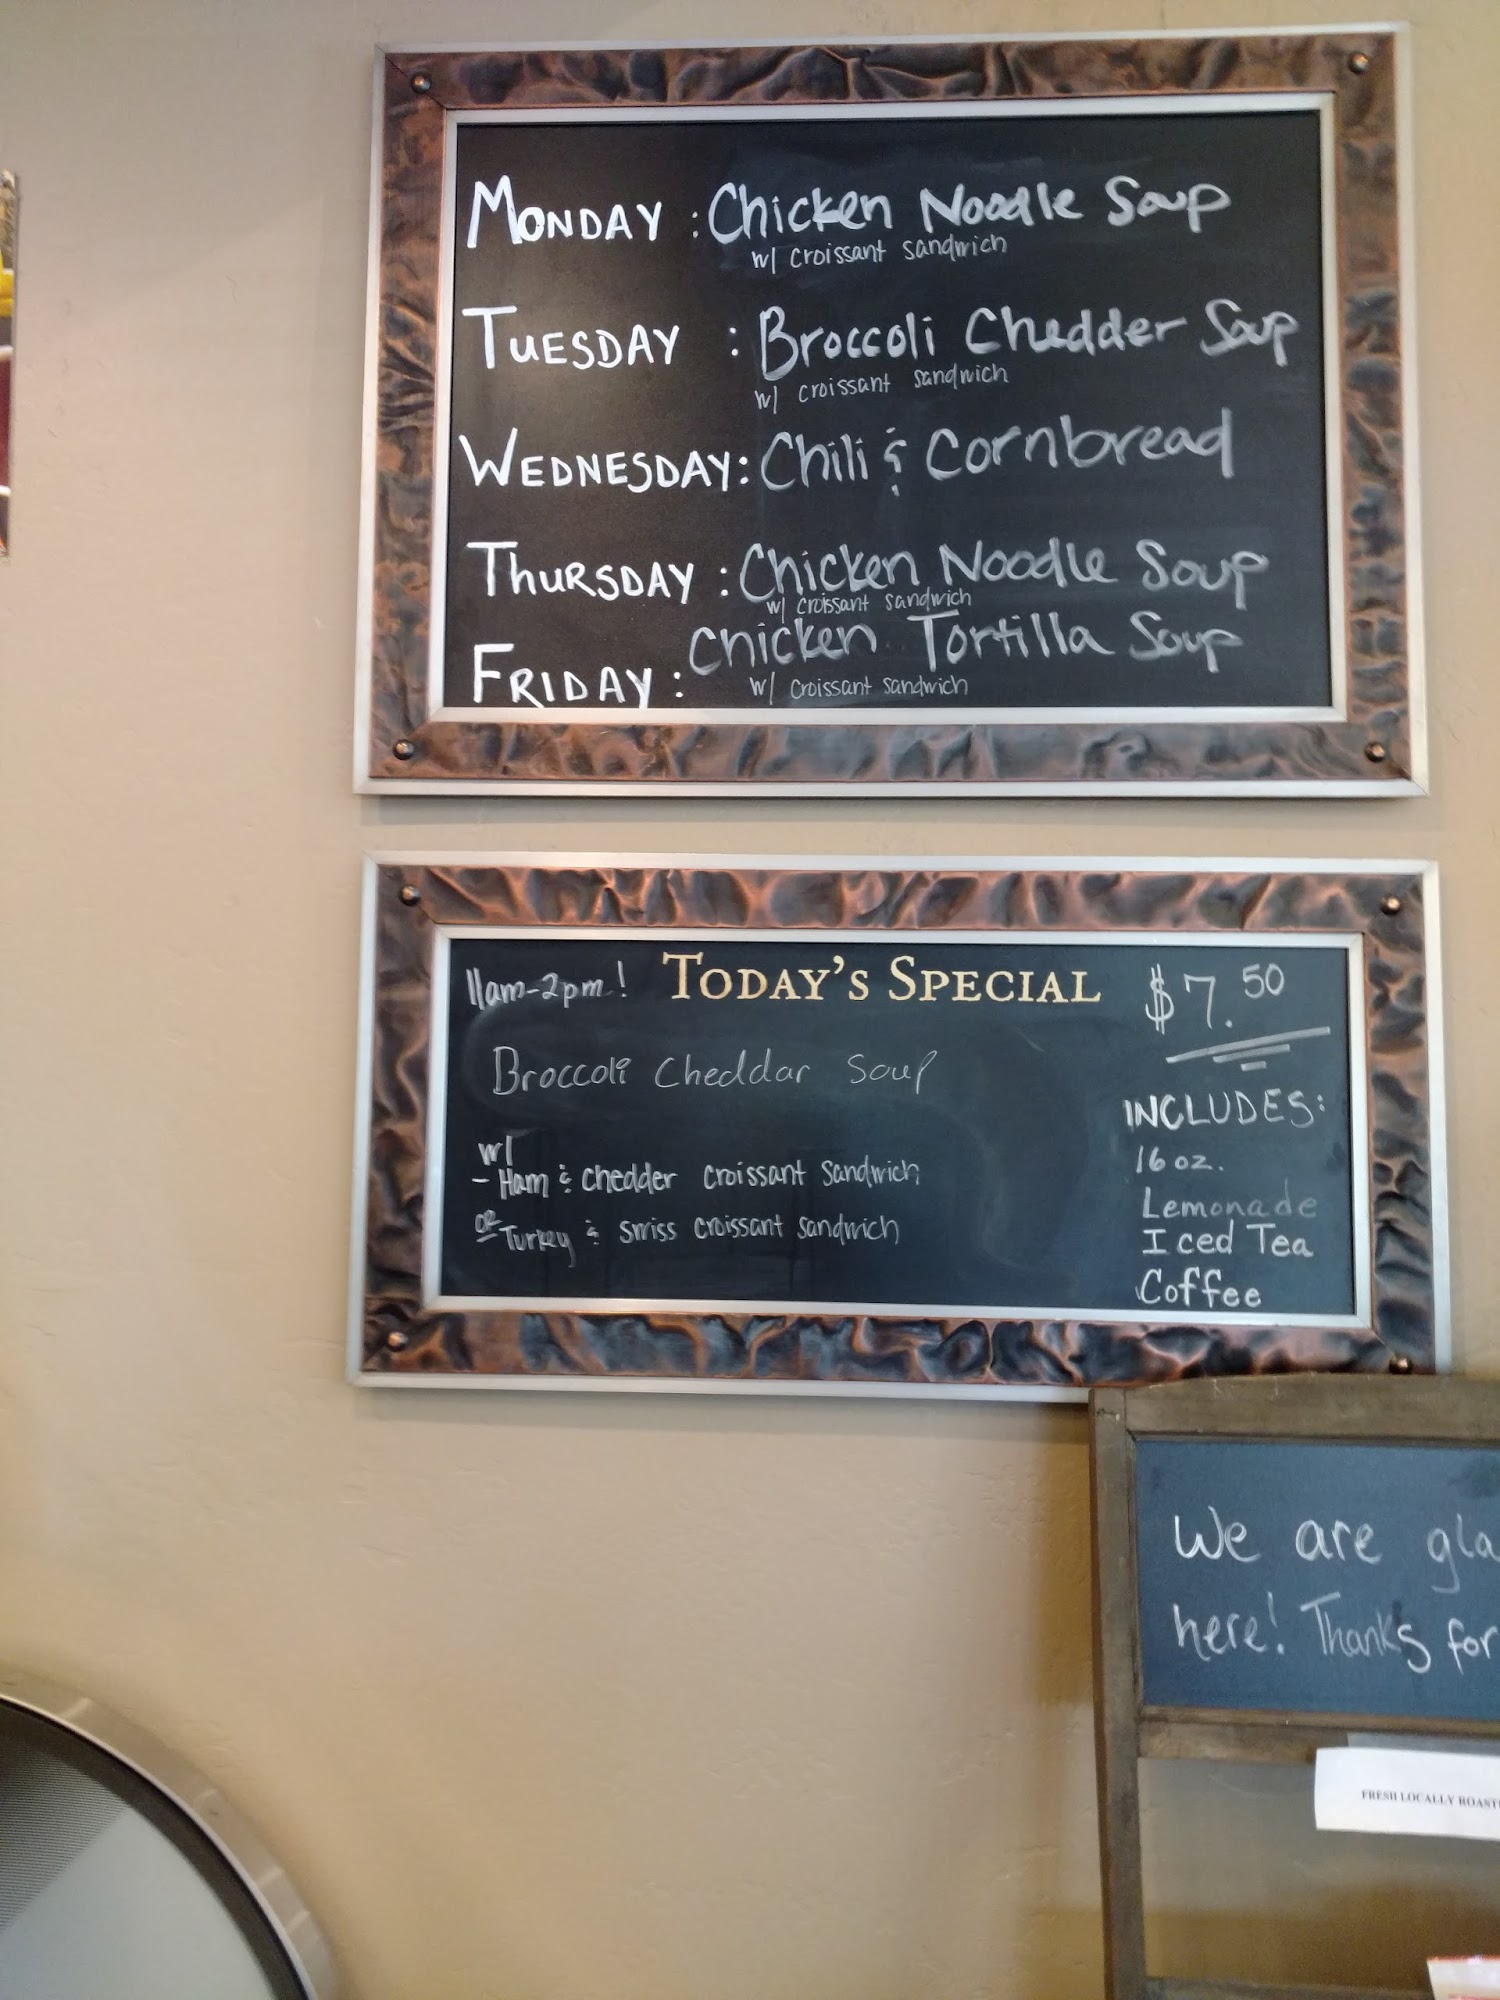 MONDAY : Chicken Noodle Soup
w/ croissant sandwich
TUESDAY : Broccoli Chedder Soup
w/ croissant sandwich
WEDNESDAY: Chili & Cornbread
THURSDAY : Chicken Noodle Soup
w/ croissant sandwich
FRIDAY : Chicken Tortilla Soup
w/ croissant sandwich
11am-2pm! TODAY'S SPECIAL $7.50
Broccoli Cheddar Soup
w/
- Ham & chedder croissant sandwich
OR Turkey & swiss croissant sandwich
INCLUDES:
16 oz.
Lemonade
Iced Tea
Coffee
We are
here! Thank's for
FRESH LOCALLY